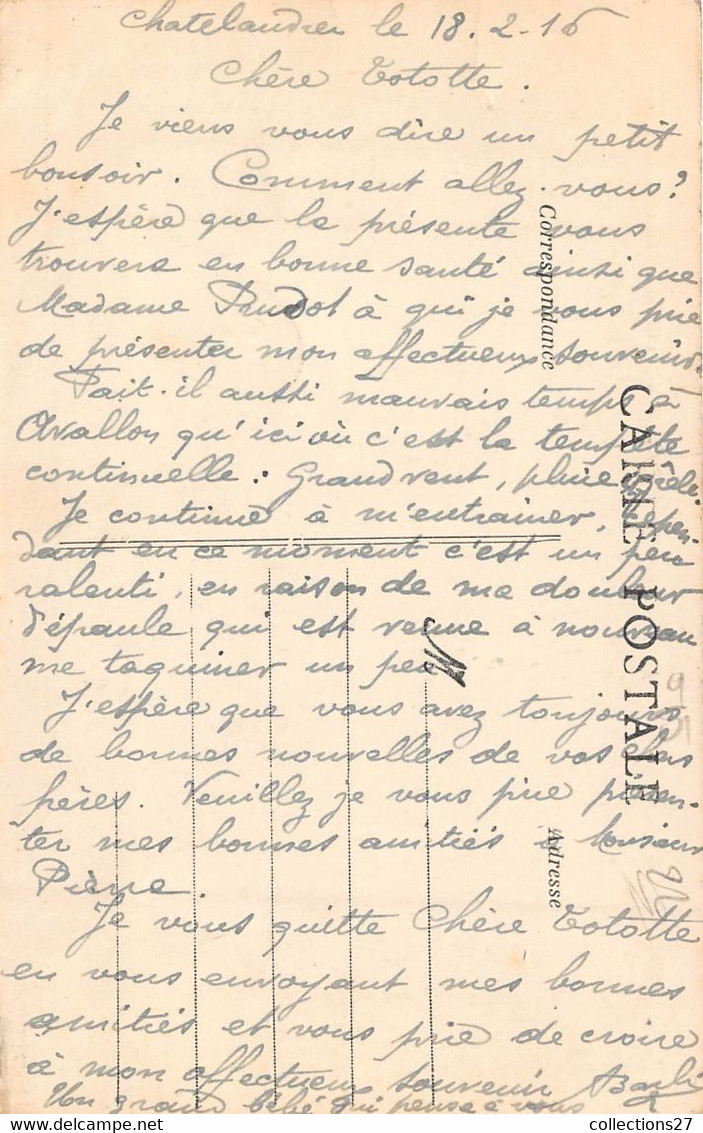 Chatelaudren le 18.2-16
Chère Totote.
Je viens vous dire un petit
bonsoir. Comment allez-vous?
J'espère que la présente vous
trouvera en bonne santé ainsi que
Madame Prudot à qui je vous prie
de présenter mon affectueux souvenir
Fait-il aussi mauvais temps à
Avallon qu'ici où c'est la tempête
continuelle: Grand vent, pluie, grêle.
Je continue à m'entrainer, cepen-
dant en ce moment c'est un peu
ralenti, en raison de ma douleur
d'épaule qui est venue à nouveau
me taquiner un peu
J'espère que vous avez toujours
de bonnes nouvelles de vos chers
frères. Veuillez je vous prie présen-
ter mes bonnes amitiés à Monsieur
Pierre.
Je vous quitte Chère Totote
en vous envoyant mes bonnes
amitiés et vous prie de croire
à mon affectueux souvenir
Un grand bébé qui pense à vous
CARTE POSTALE
Correspondance
Adresse
M
collections27